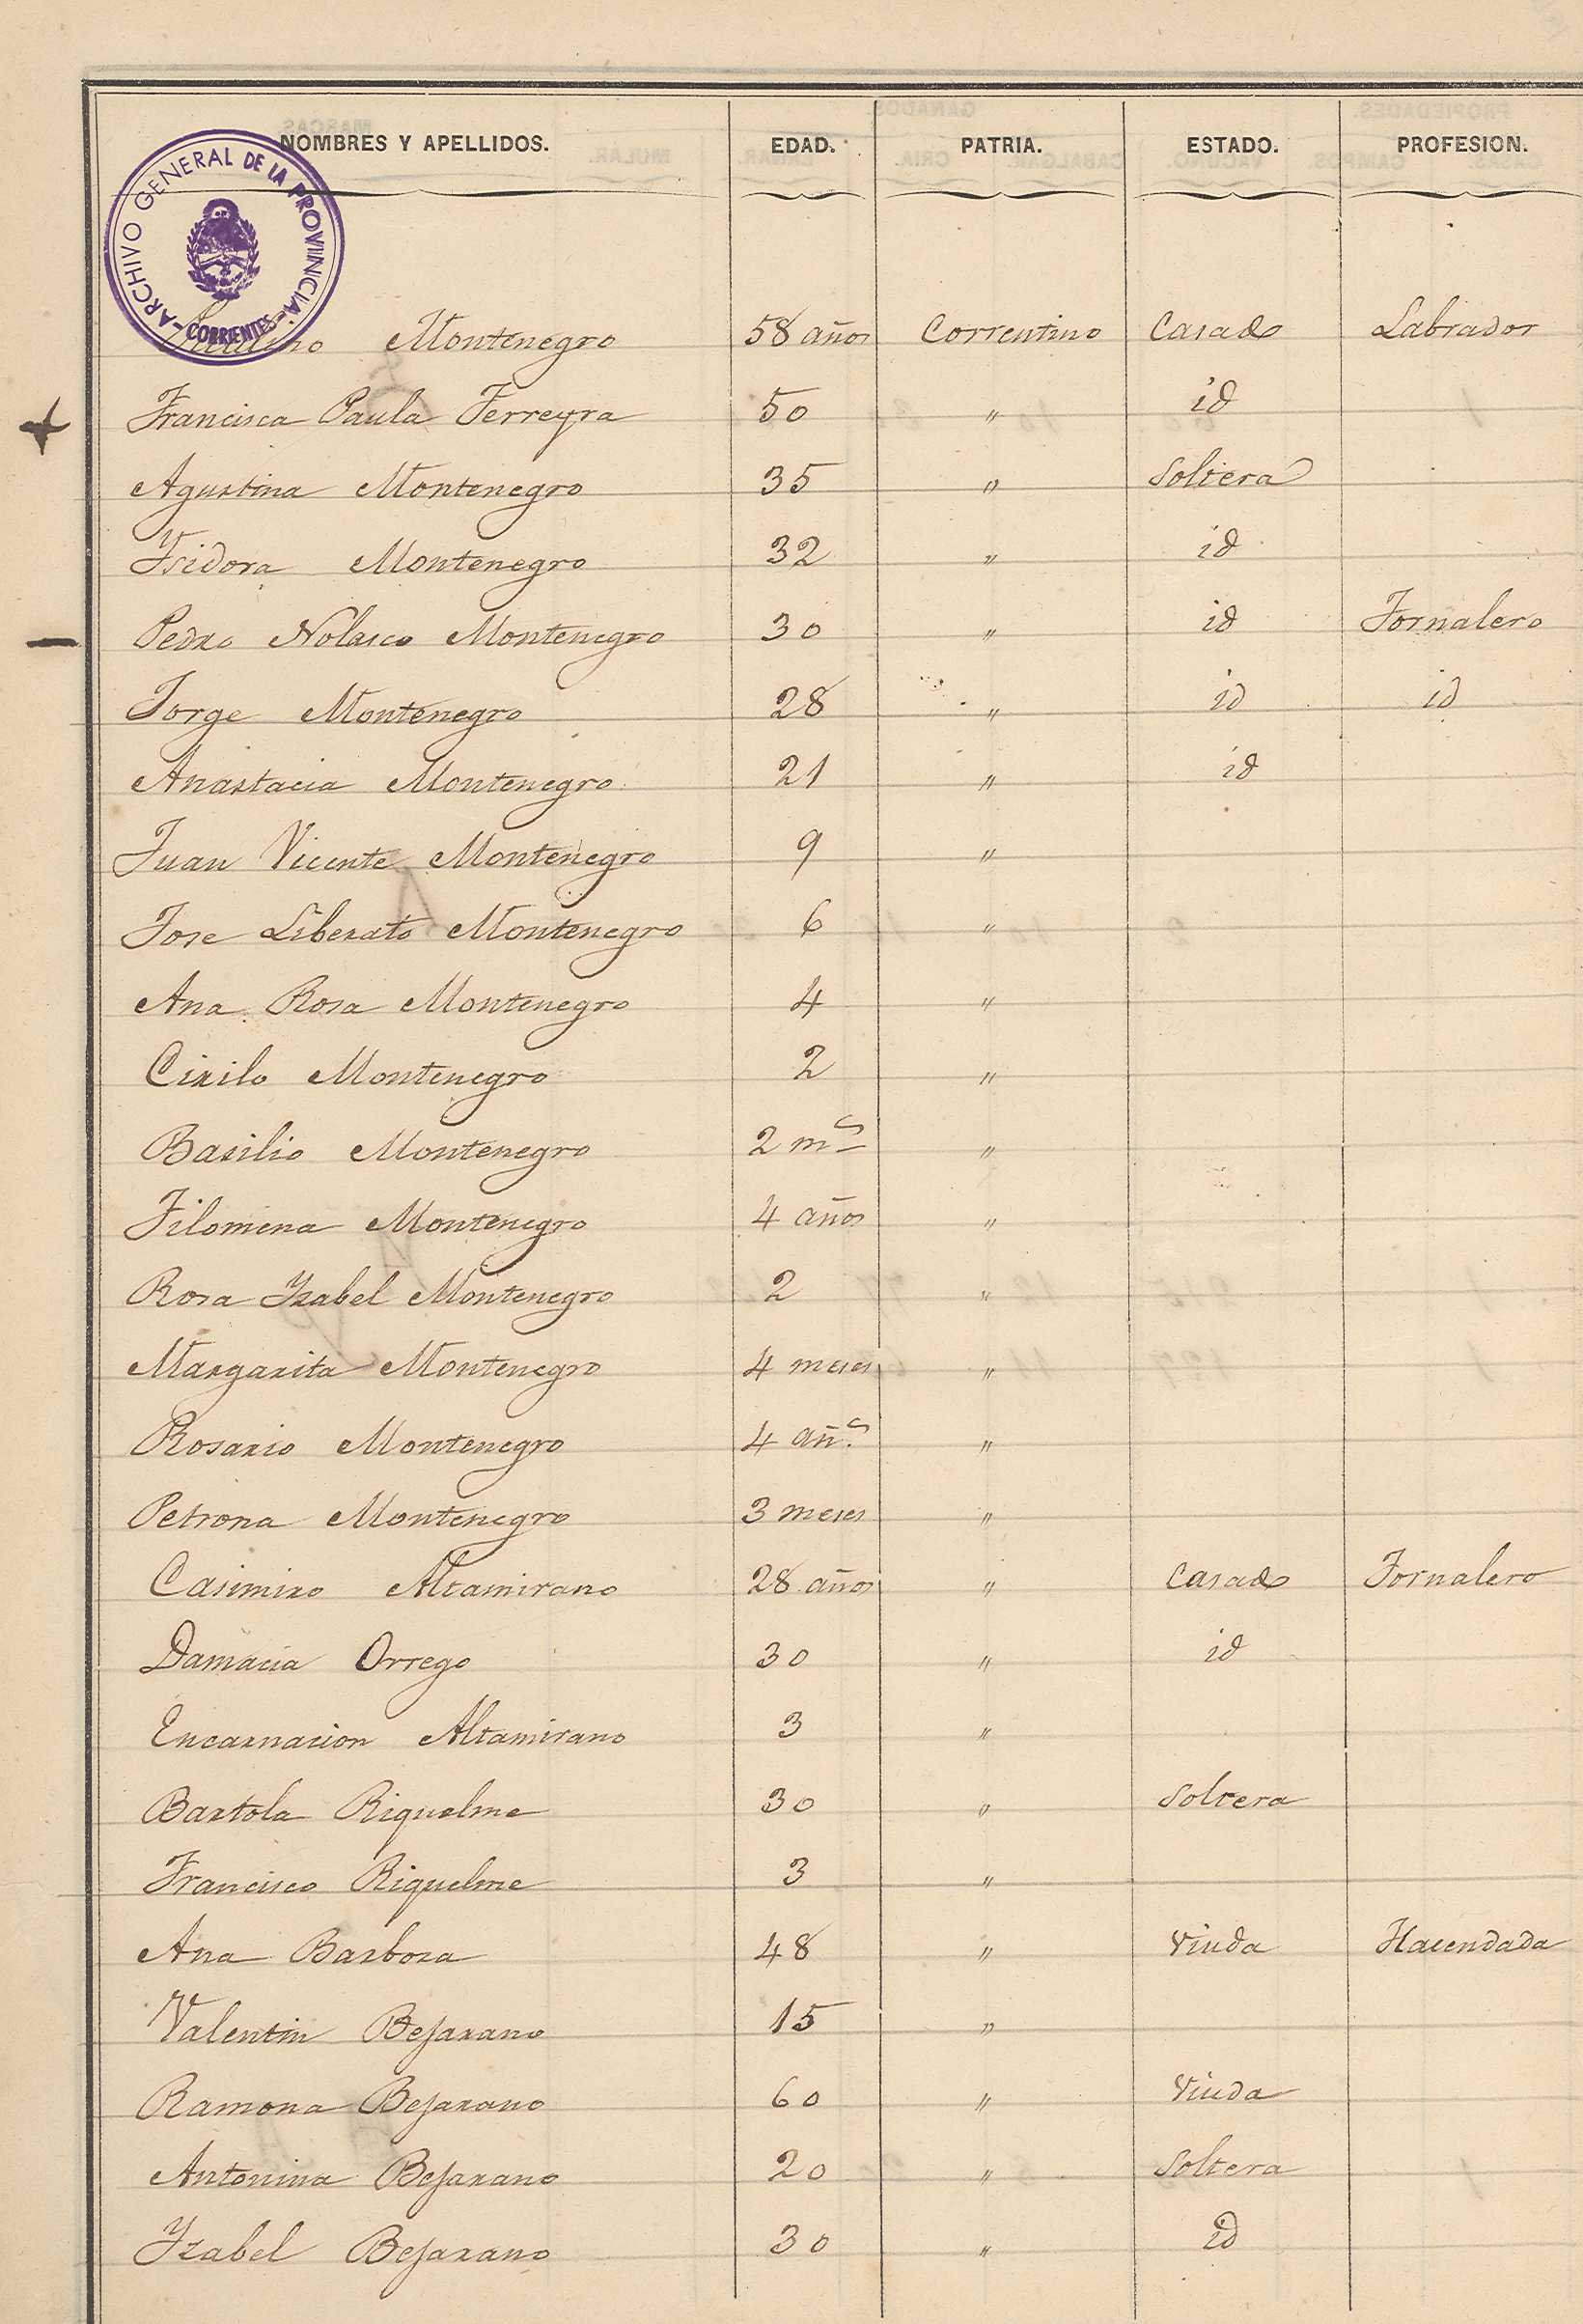 NOMBRES Y APELLIDOS. EDAD. PATRIA. ESTADO. PROFESION.
ARCHIVO GENERAL DE LA PROVINCIA - CORRIENTES -
Montenegro 58 años Correntino Casado Labrador
Francisca Paula Ferreyra 50 " id
Agustina Montenegro 35 " Soltera
Isidora Montenegro 32 " id
Pedro Nolasco Montenegro 30 " id Jornalero
Jorge Montenegro 28 " id id
Anastacia Montenegro 21 " id
Juan Vicente Montenegro 9 "
Jose Liberato Montenegro 6 "
Ana Rosa Montenegro 4 "
Cirilo Montenegro 2 "
Basilio Montenegro 2 ms "
Filomena Montenegro 4 años "
Rosa Yzabel Montenegro 2 "
Margarita Montenegro 4 meses "
Rosario Montenegro 4 añ.s "
Petrona Montenegro 3 meses "
Casimiro Altamirano 28 años " Casado Jornalero
Damacia Orrego 30 " id
Encarnacion Altamirano 3 "
Bartola Riquelme 30 " Soltera
Francisco Riquelme 3 "
Ana Barboza 48 " Viuda Hacendada
Valentin Bejarano 15 "
Ramona Bejarano 60 " Viuda
Antonina Bejarano 20 " Soltera
Yzabel Bejarano 30 " id